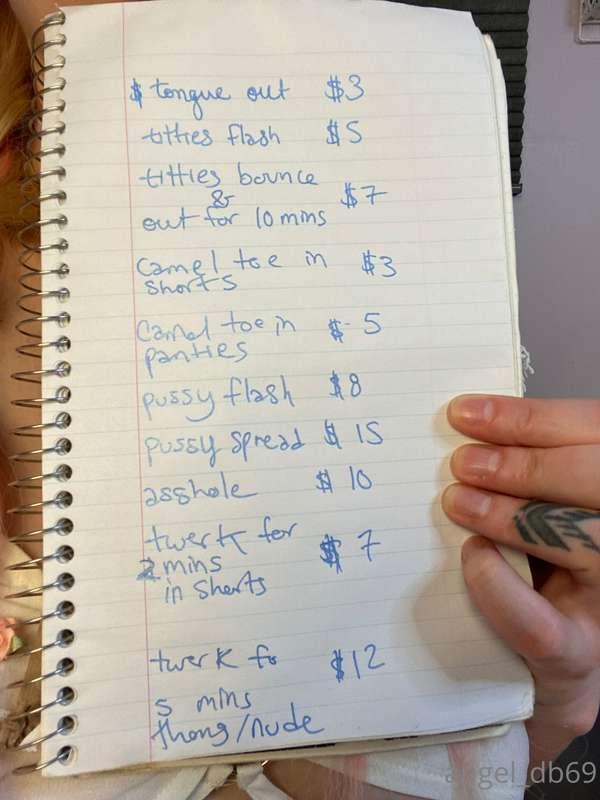 $ tongue out $3
titties flash $5
titties bounce
& $7
out for 10 mins
Camel toe in $3
shorts
Camel toe in $ 5
panties
pussy flash $8
pussy spread $ 15
asshole $ 10
twerk for
2 mins $ 7
in shorts
twerk fo $12
5 mins
thong/nude
angel_db69